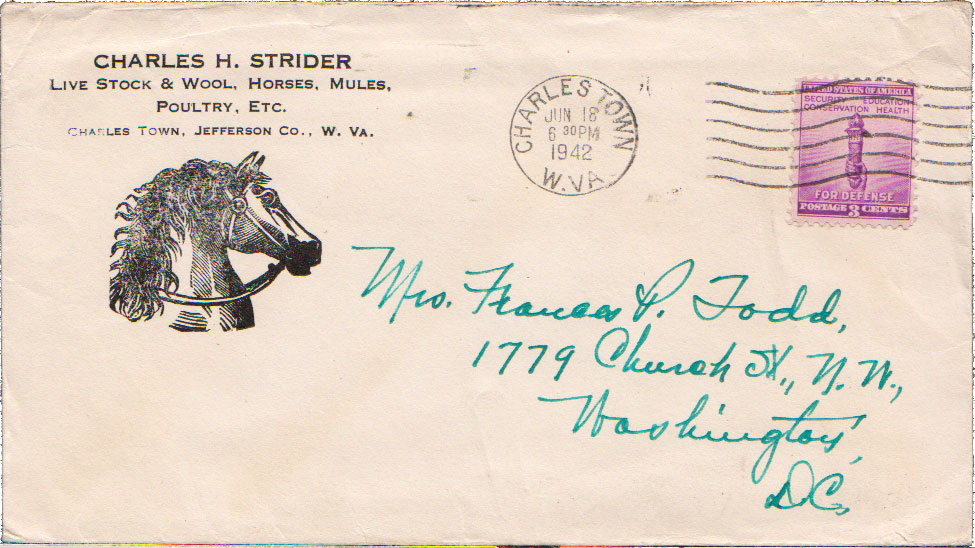 CHARLES H. STRIDER
LIVE STOCK & WOOL, HORSES, MULES,
POULTRY, ETC.
CHARLES TOWN, JEFFERSON CO., W. VA.
CHARLES TOWN
JUN 18
6 30PM
1942
W.VA.
UNITED STATES OF AMERICA
SECURITY EDUCATION
CONSERVATION HEALTH
FOR DEFENSE
POSTAGE 3 CENTS
Mrs. Frances P. Todd,
1779 Church St., N.W.,
Washington,
D.C.